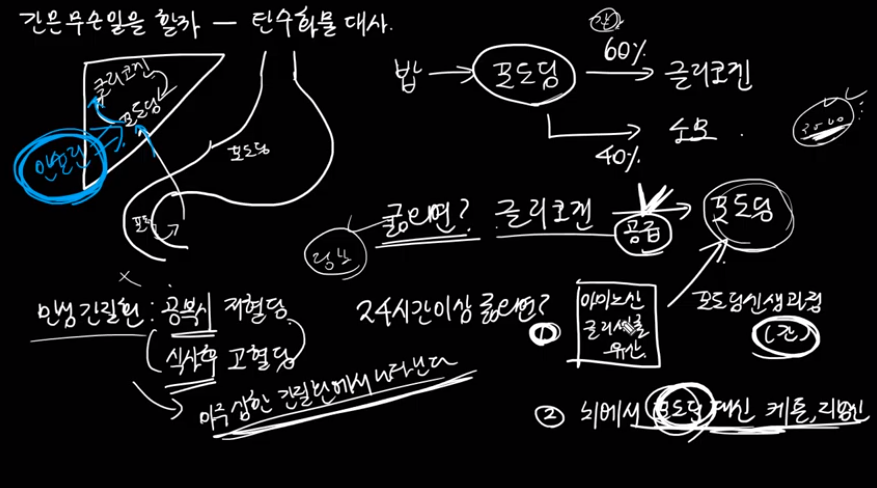 간은무슨일을 할까 — 탄수화물 대사.
글리코겐
포도당
인슐린
포도당
포도
밥 → 포도당 → 글리코겐
간
60%
40%
소모
굶으면? 글리코겐 → 포도당
공급
당뇨
만성간질환: 공복시 저혈당
식사후 고혈당
아주 심한 간질환에서 나타난다
24시간이상 굶으면?
①
아미노산
글리세롤
유산.
포도당신생과정
(간)
② 뇌에서 포도당 대신 케톤,